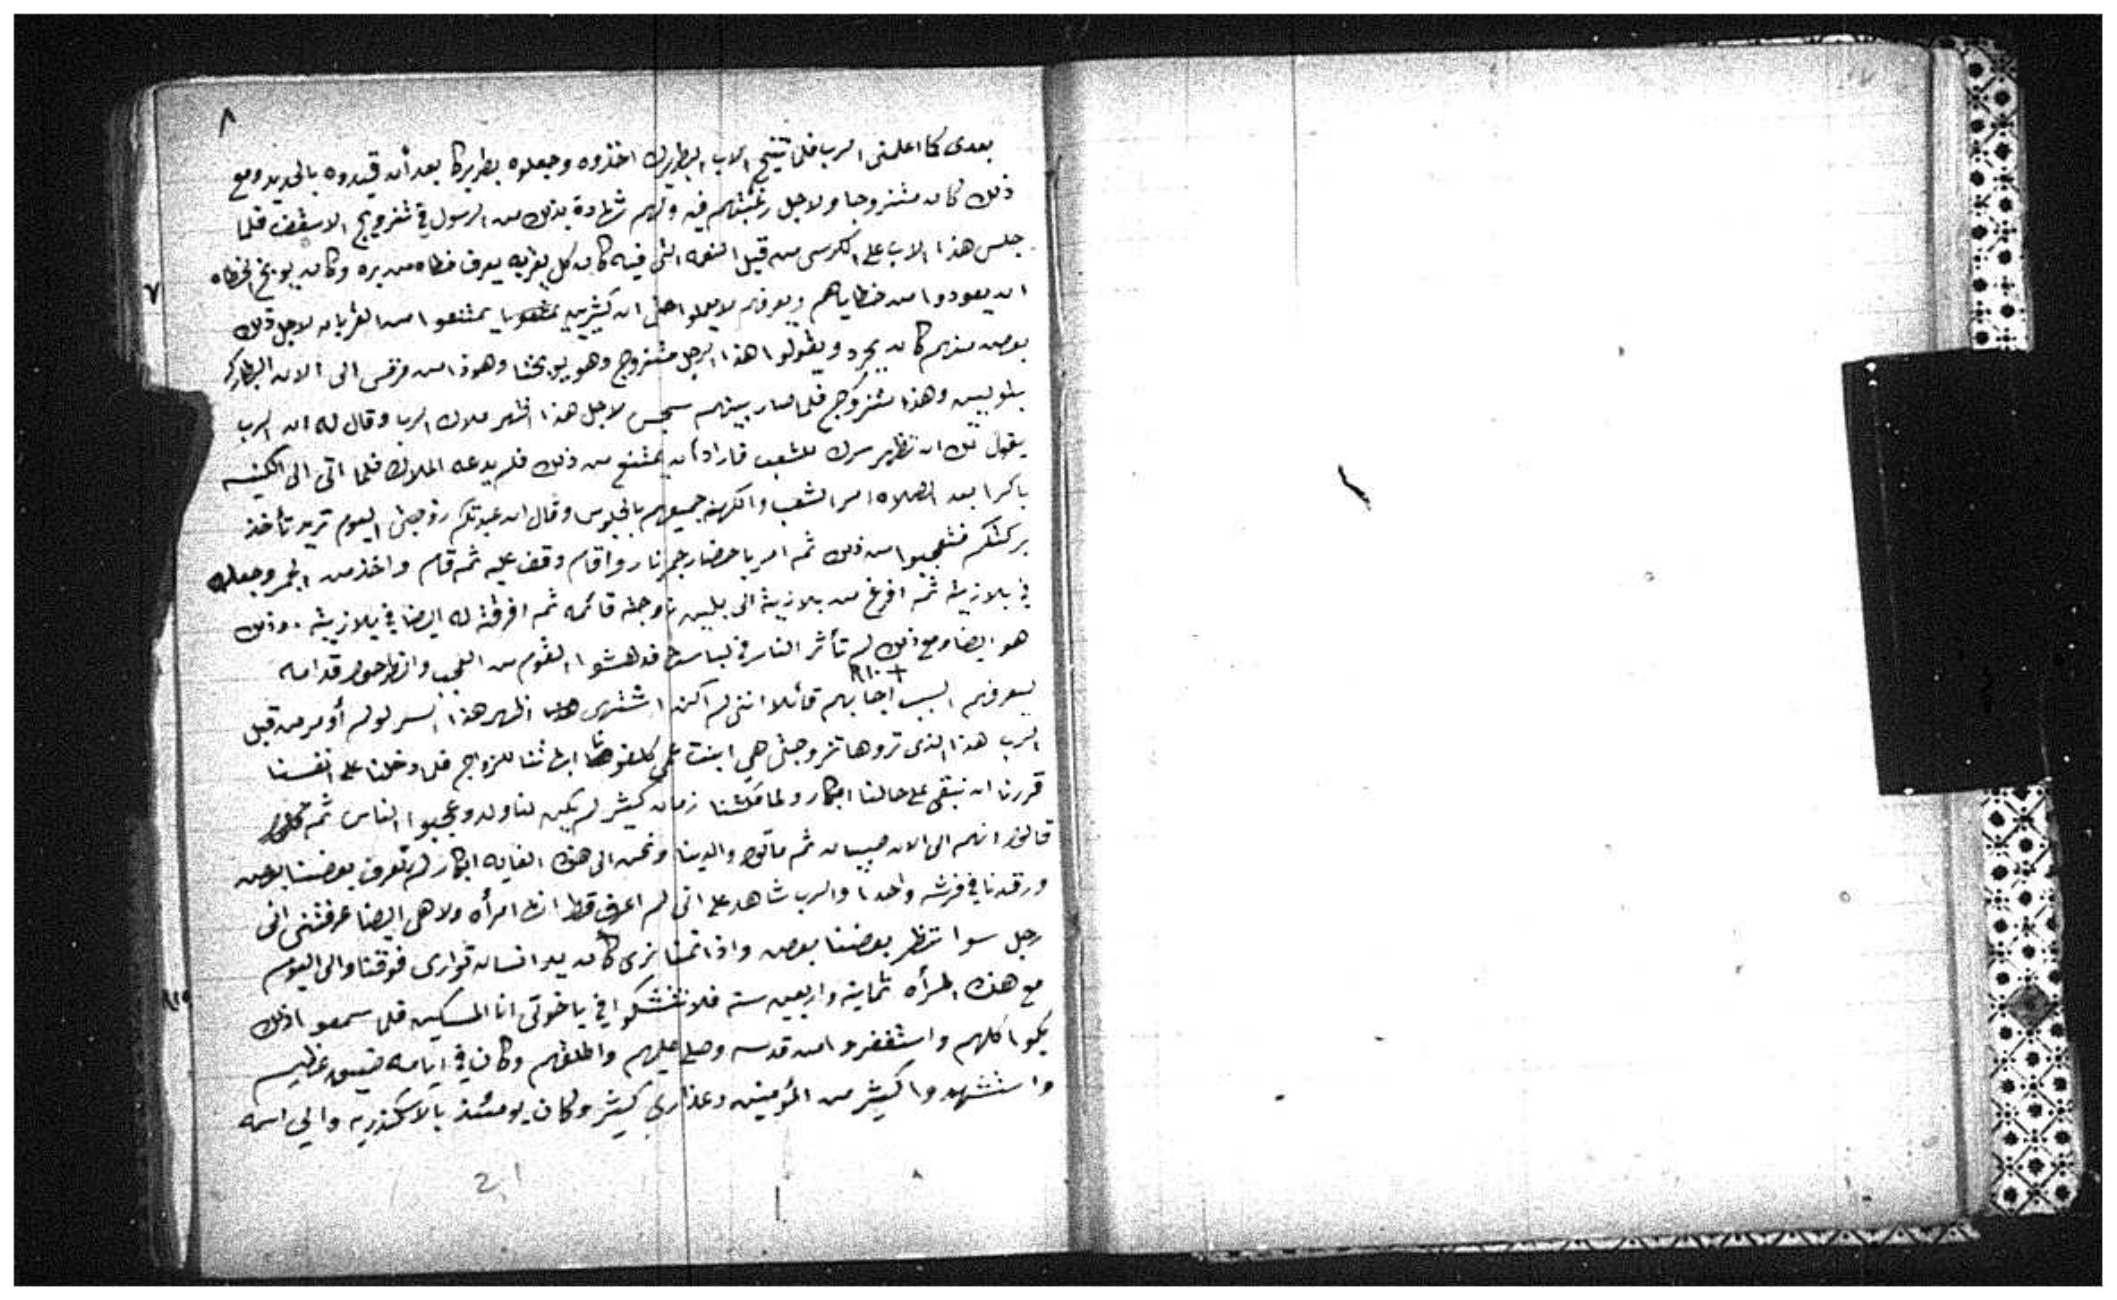 ٨
بعدى كما اعلمنى الرب فلما تنيح الاب البطريرك اخذوه وجعلوه بطريركا بعد أن قيدوه بالحديد ومع
ذلك كان متزوجا ولاجل رغبتهم فيه ولهم شهادة بذلك من الرسول في تزويج الاسقف فلما
جلس هذا الاب على الكرسى من قبل النعمه التى فيه كان كل يعرف خطاه من بره وكان يوبخ الخطاه
ان يعودوا من خطاياهم ويعرفهم لا يعملوا حتى ان كثيرين يمتنعوا من القربان لاجل ذلك
بعض منهم كان يحرد ويقولوا هذا الرجل متزوج وهو يوبخنا وهوذا من مرقس الى الان البطاركه
بتوليين وهذا متزوج فلما صار بينهم سجس لاجل هذا ظهر ملاك الرب وقال له ان الرب
يقول لك ان تظهر سرك للشعب فاراد أن يمتنع من ذلك فلم يدعه الملاك فلما اتى الى الكنيسه
باكرا بعد الصلاه امر الشعب والكهنه جميعهم بالجلوس وقال ان عبدتكم زوجتى اليوم تريد تأخذ
بركتكم فتعجبوا من ذلك ثم امر باحضار جمر نار واقام وقف عليه ثم قام واخذ من الجمر وجعله
في بلازيته ثم افرغ من بلازيته الى بلين زوجته قائمه ثم افرغته له ايضا في بلازيته . وذلك
هو ايضا ومع ذلك لم تأثر النار في لباسهما فدهشوا القوم من العجب وانطرحوا قدامه
ليعرفهم السبب اجابهم قائلا اننى لم اكن اشتهى اظهر هذا السر لولم أومر من قبل
الرب هذا الذى تروها تزوجتى هي ابنت عمى للزواج فلما دخلنا على انفسنا
قررنا ان نبقى على حالنا ابكار ولما مكثنا زمان كثير لم يكن لنا ولد وعجبوا الناس ثم
قالوا انهم الى الان صبيان ثم ماتوا والدينا ونحن الى هذه الغايه ابكار لم نعرف بعضنا بعض
ورقدنا في فرشه واحدا والرب شاهد على انى لم اعرف قط انها امرأه ولا هى ايضا عرفتنى انى
رجل سوا نظر بعضنا بعض واذا نمنا نرى كان يد انسان توارى فوقنا والى اليوم
مع هذه المرأه ثمانية واربعين سنه فلا تشكوا في ياخوتى انا المسكين فلما سمعوا ذلك
بكوا كلهم واستغفروا من قدسه وصلى عليهم واطلقهم وكان في ايامه ضيق عظيم
واستشهدوا كثير من المؤمنين وعذارى كثير وكان يومئذ بالاسكندريه والي اسمه